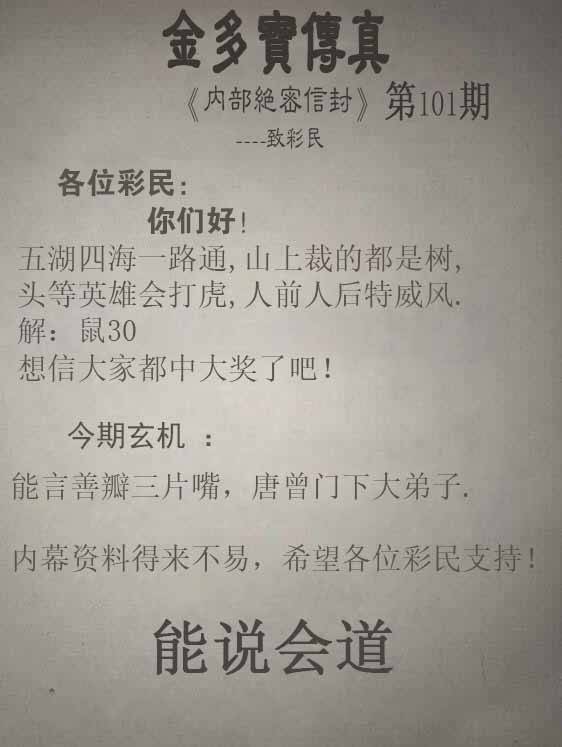 金多寶傳真
《内部絕密信封》第101期
----致彩民
各位彩民:
你们好!
五湖四海一路通,山上裁的都是树,
头等英雄会打虎,人前人后特威风.
解：鼠30
想信大家都中大奖了吧!
今期玄机 ：
能言善瓣三片嘴，唐曾门下大弟子.
内幕资料得来不易，希望各位彩民支持!
能说会道